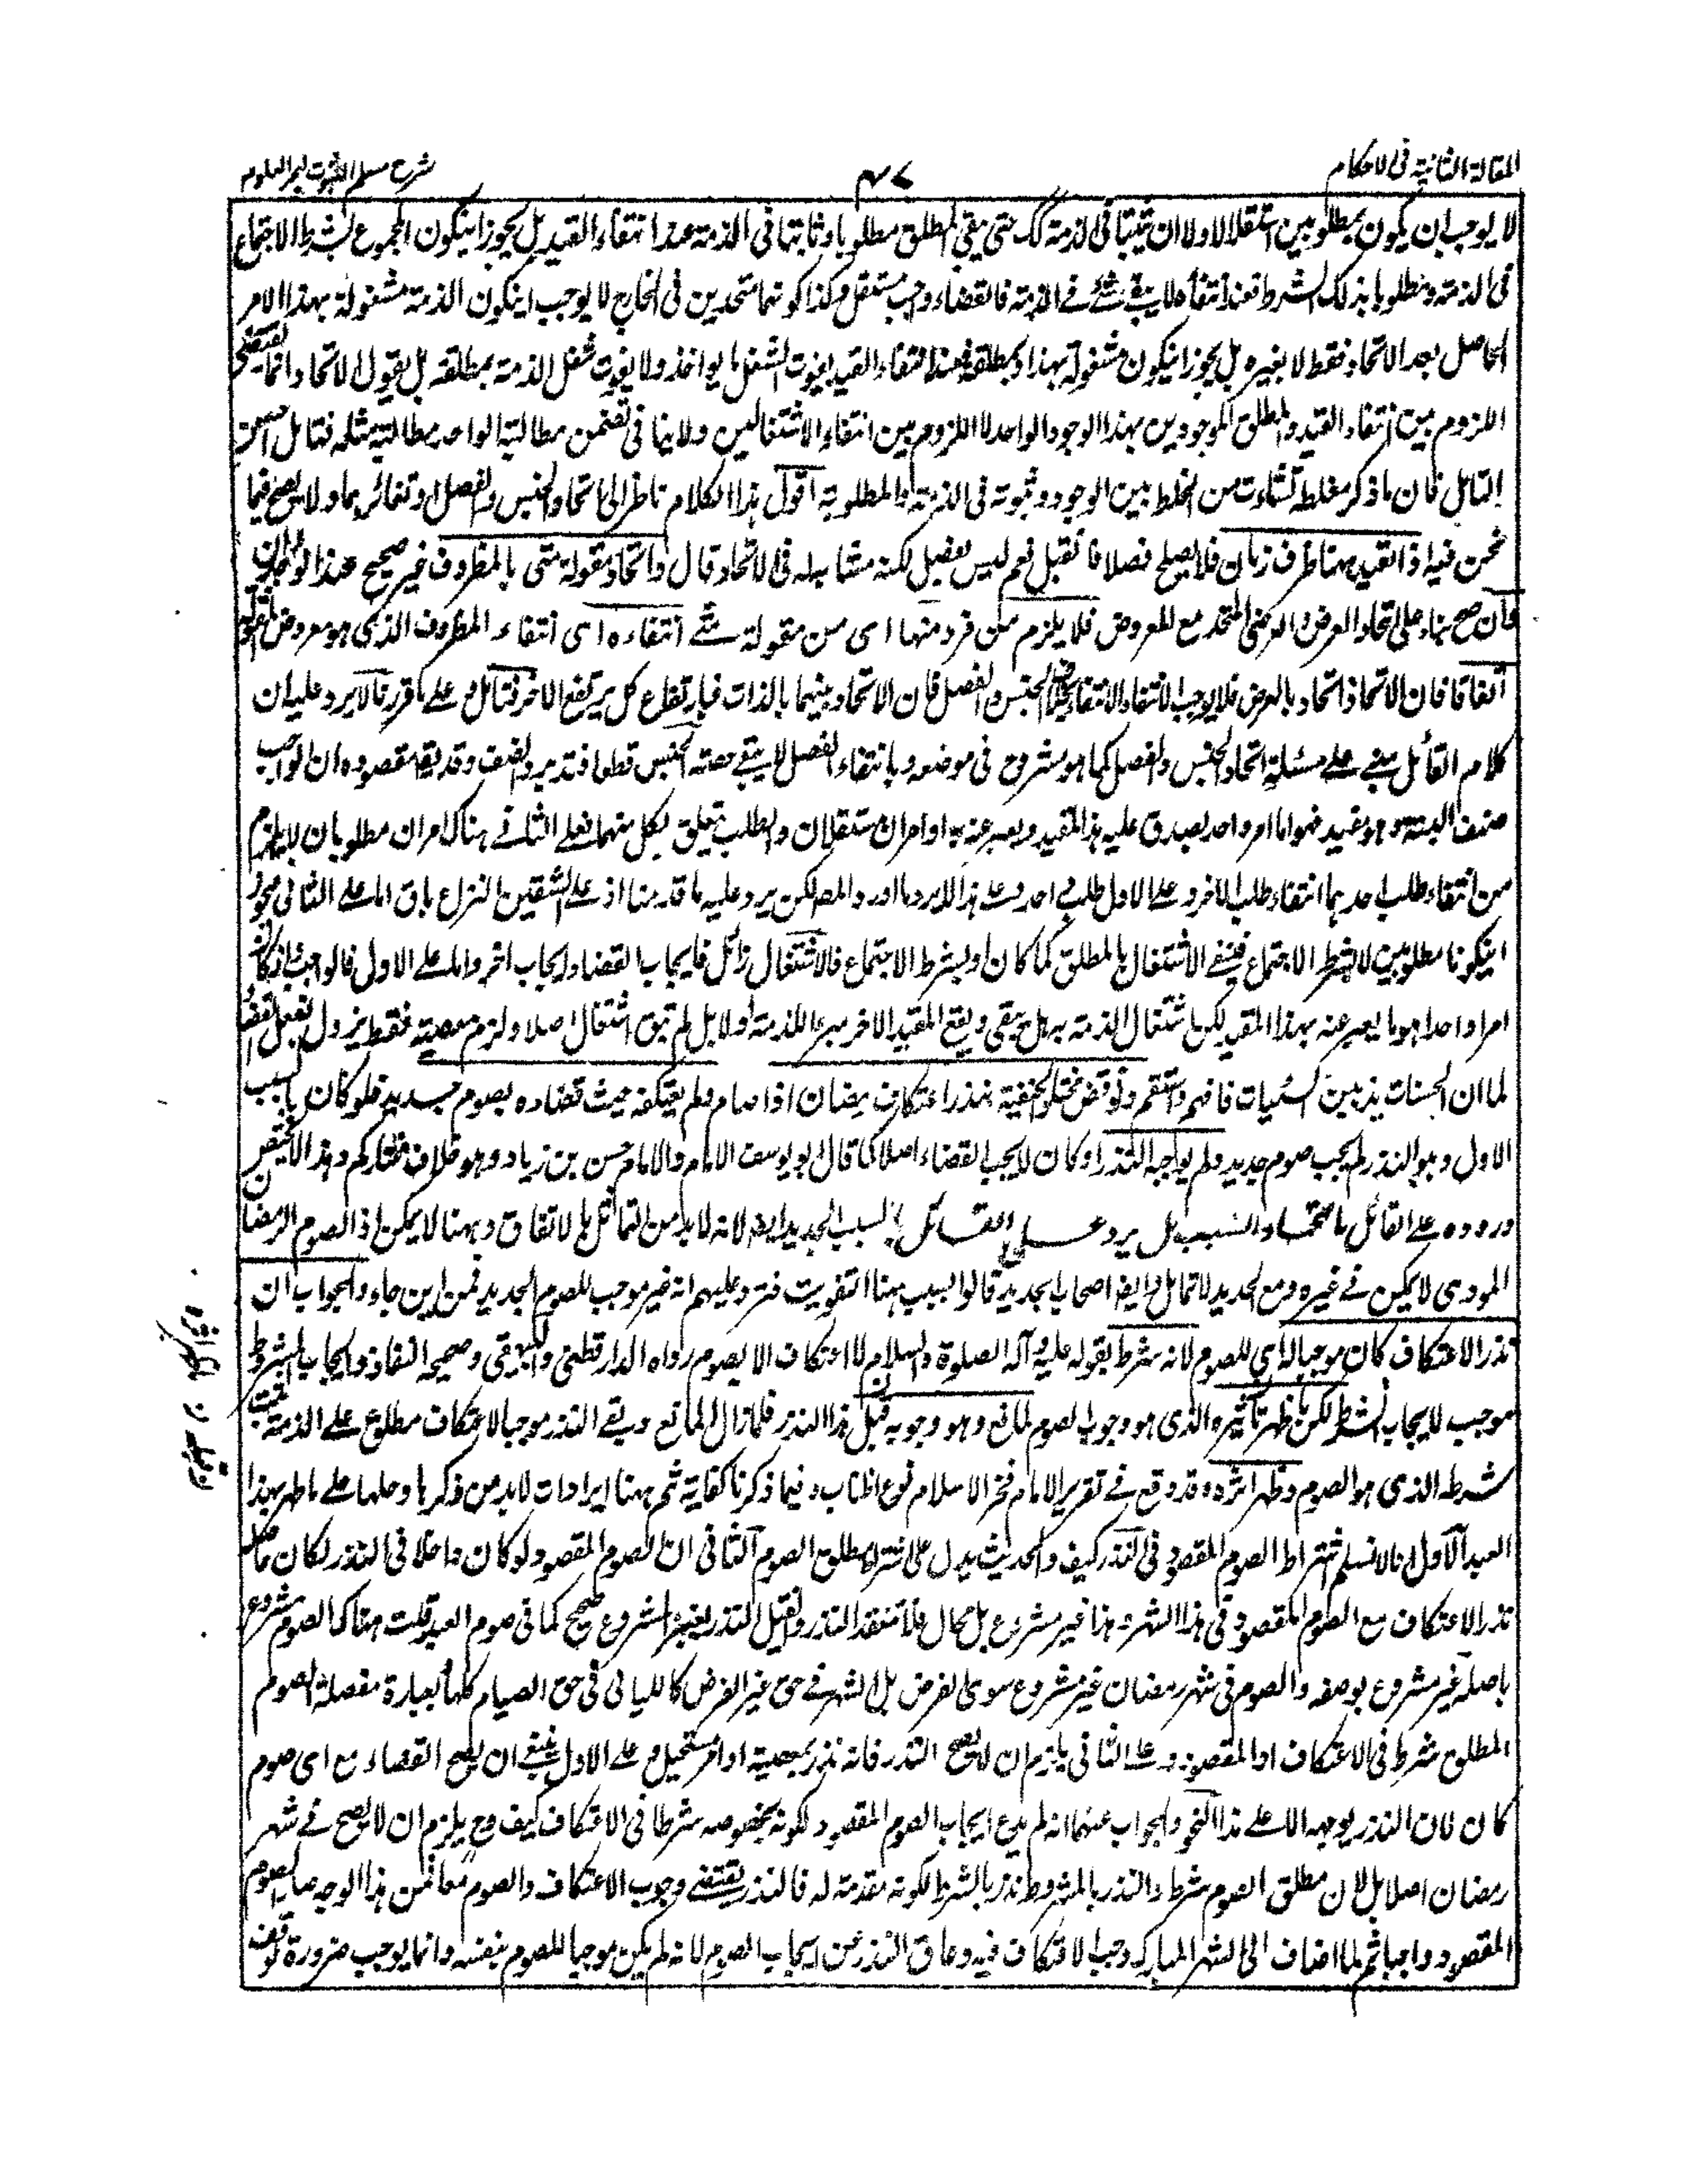 المقالة الثانية فى الاحكام
٤٧
شرح مسلم الثبوت لبحر العلوم
لا يوجب ان يكون بمطلوبين استقلالا ولا ان يثبتا فى الذمة كك حتى يبقى المطلق مطلوبا وثابتا فى الذمة عند انتفاء القيد بل يجوز انيكون المجموع بشرط الاجتماع
فى الذمة ومطلوبا بذلك الشرط فعند انتفائه لا يبقى شئ فى الذمة فالقضاء واجب مستقل وكذا كونهما متحدين فى الخارج لا يوجب انيكون الذمة مشغولة بهذا الامر
الحاصل بعد الاتحاد فقط لا بغيره بل يجوز انيكون مشغولة بهذا وبمطلقه فعند انتفاء القيد يفوت الشغل بما يواخذ ولا يفوت شغل الذمة بمطلقه بل يقول الاتحاد انما يقتضى
اللزوم بين انتفاء القيد والمطلق الموجودين بهذا الوجود الواحد لا اللزوم بين انتفاء الاشتغالين ولا ينافى تضمن مطالبة الواحد مطالبة مثله فتامل احسن
التامل فان ما ذكر مغلطة نشأت من الخلط بين الوجود وثبوته فى الذمة والمطلوبة اقول هذا الكلام ناظر الى اتحاد الجنس والفصل او تغائرهما ولا يصح فيما
نحن فيه اذ القيد ههنا ظرف زمان فلا يصلح فصلا فان قيل نعم ليس بفصل لكنه مشابه له فى الاتحاد قال واتحاد مقولة متى بالمظروف غير صحيح عند الجمهور
وان صح بناء على اتحاد العرض والعرضى المتحد مع المعروض فلا يلزم من فرد منها اى من مقولة متى انتفاءه اى انتفاء المظروف الذى هو معروض المقولة
اتفاقا فان الاتحاد اتحاد بالعرض فلا يوجب الانتفاء الانتفاء بخلاف الجنس والفصل فان الاتحاد بينهما بالذات فبارتفاع كل يرتفع الاخر فتامل وعلى ما قررنا لا يرد عليه ان
كلام القائل مبنى على مسئلة اتحاد الجنس والفصل كما هو مشروح فى موضعه وبانتفاء الفصل لا يبقى حصة الجنس قطعا فتدبر وانصف وقد يقال مقصوده ان الواجب
صنف البتة وهو مقيد فهو اما امر واحد يصدق عليه هذا المقيد ويعبر عنه به او امران مستقلان والطلب تعلق بكل منهما فعلى الثانى هناك امران مطلوبان لا يلزم
من انتفاء طلب احدهما انتفاء طلب الاخر وعلى الاول طلب احد وعلى هذا لا يرد ما اورد المصـ لكن يرد عليه ما قدمنا اذ على الشقين النزاع باق اما على الثانى فيجوز
انيكونا مطلوبين لا بشرط الاجتماع فيبقى الاشتغال بالمطلق كما كان او بشرط الاجتماع فالاشتغال زائل فايجاب القضاء ايجاب اخر واما على الاول فالواجب اذ كان
امرا واحدا هو ما يعبر عنه بهذا المقيد لكن اشتغال الذمة به هل يبقى ويقع المقيد الاخر مبرءا للذمة اولا بل لم تبق اشتغال اصلا ولزم معصية فقط يزول بفعل القضاء
لما ان الحسنات يذهبن السيئات فافهم واستقم ونوقض مختار الحنفية بنذر اعتكاف رمضان اذا صام ولم يعتكف حيث قضاءه بصوم جديد فلو كان بالسبب
الاول وهو النذر لم يجب صوم جديد ولم يوجبه النذر او كان لا يجب القضاء اصلا كما قال ابو يوسف الامام والامام حسن بن زياد وهو خلاف مختاركم وهذا لا يقتصر
وروده على القائل باتحاد السبب بل يرد على القائل بالسبب الجديد ايضا لانه لابد من التماثل بالاتفاق وههنا لا يمكن اذ الصوم الرمضانى
المودى لا يمكن فى غيره ومع الجديد لا تماثل وايضا اصحاب الجديد قالوا السبب ههنا التفويت فترد عليهم انه غير موجب للصوم الجديد فمن اين جاء والجواب ان
نذر الاعتكاف كان موجبا له اى للصوم لانه شرط بقوله عليه وآله الصلوة والسلام لا اعتكاف الا بصوم رواه الدارقطنى والبيهقى وصححه النقاد وايجاب المشروط
موجب لايجاب الشرط لكن ما ظهر تاثيره الذى هو وجوب الصوم لمانع وهو وجوبه قبل هذا النذر فلما زال المانع وبقى النذر موجبا لاعتكاف مطلق على الذمة
شرطه الذى هو الصوم وظهر اثره وقد وقع فى تقرير الامام فخر الاسلام نوع اطناب وفيما ذكرنا كفاية ثم ههنا ايرادات لابد من ذكرها وحلها على ما ظهر لهذا
العبد الاول انا لا نسلم اشتراط الصوم المقصود فى النذر كيف والحديث يدل على اشتراط مطلق الصوم الثانى ان الصوم المقصود لو كان داخلا فى النذر لكان حاصل
نذر الاعتكاف مع الصوم المقصود فى هذا الشهر وهذا غير مشروع بل محال فلا تنعقد النذر ولو قيل النذر بغير المشروع صحيح كما فى صوم العيد قلت هناك الصوم مشروع
باصله غير مشروع بوصفه والصوم فى شهر رمضان غير مشروع سوى الفرض بل الشهر فى حق غير الفرض كالليالى فى حق الصيام كلها بعبارة مفصلة الصوم
المطلق شرط فى الاعتكاف او المقصود وعلى الثانى يلزم ان لا يصح النذر فانه نذر بمعصية او امر مستحيل وعلى الاول ينبغى ان يصح القضاء مع اى صوم
كان لان النذر يوجبه الا على هذا النحو والجواب عنهما انه لم يدع ايجاب الصوم المقصود لكونه بخصوصه شرطا فى الاعتكاف كيف وح يلزم ان لا يصح فى شهر
رمضان اصلا بل لان مطلق الصوم شرط والنذر بالمشروط نذر بالشرط لكونه مقدمة له فالنذر يقتضى وجوب الاعتكاف والصوم معا فمن هذا الوجه صار الصوم
المقصود واجبا ثم لما اضاف الى الشهر المبارك وجب الاعتكاف فيه وعاق النذر عن ايجاب الصوم لانه لم يكن موجبا للصوم بنفسه وانما يوجب ضرورة توقف